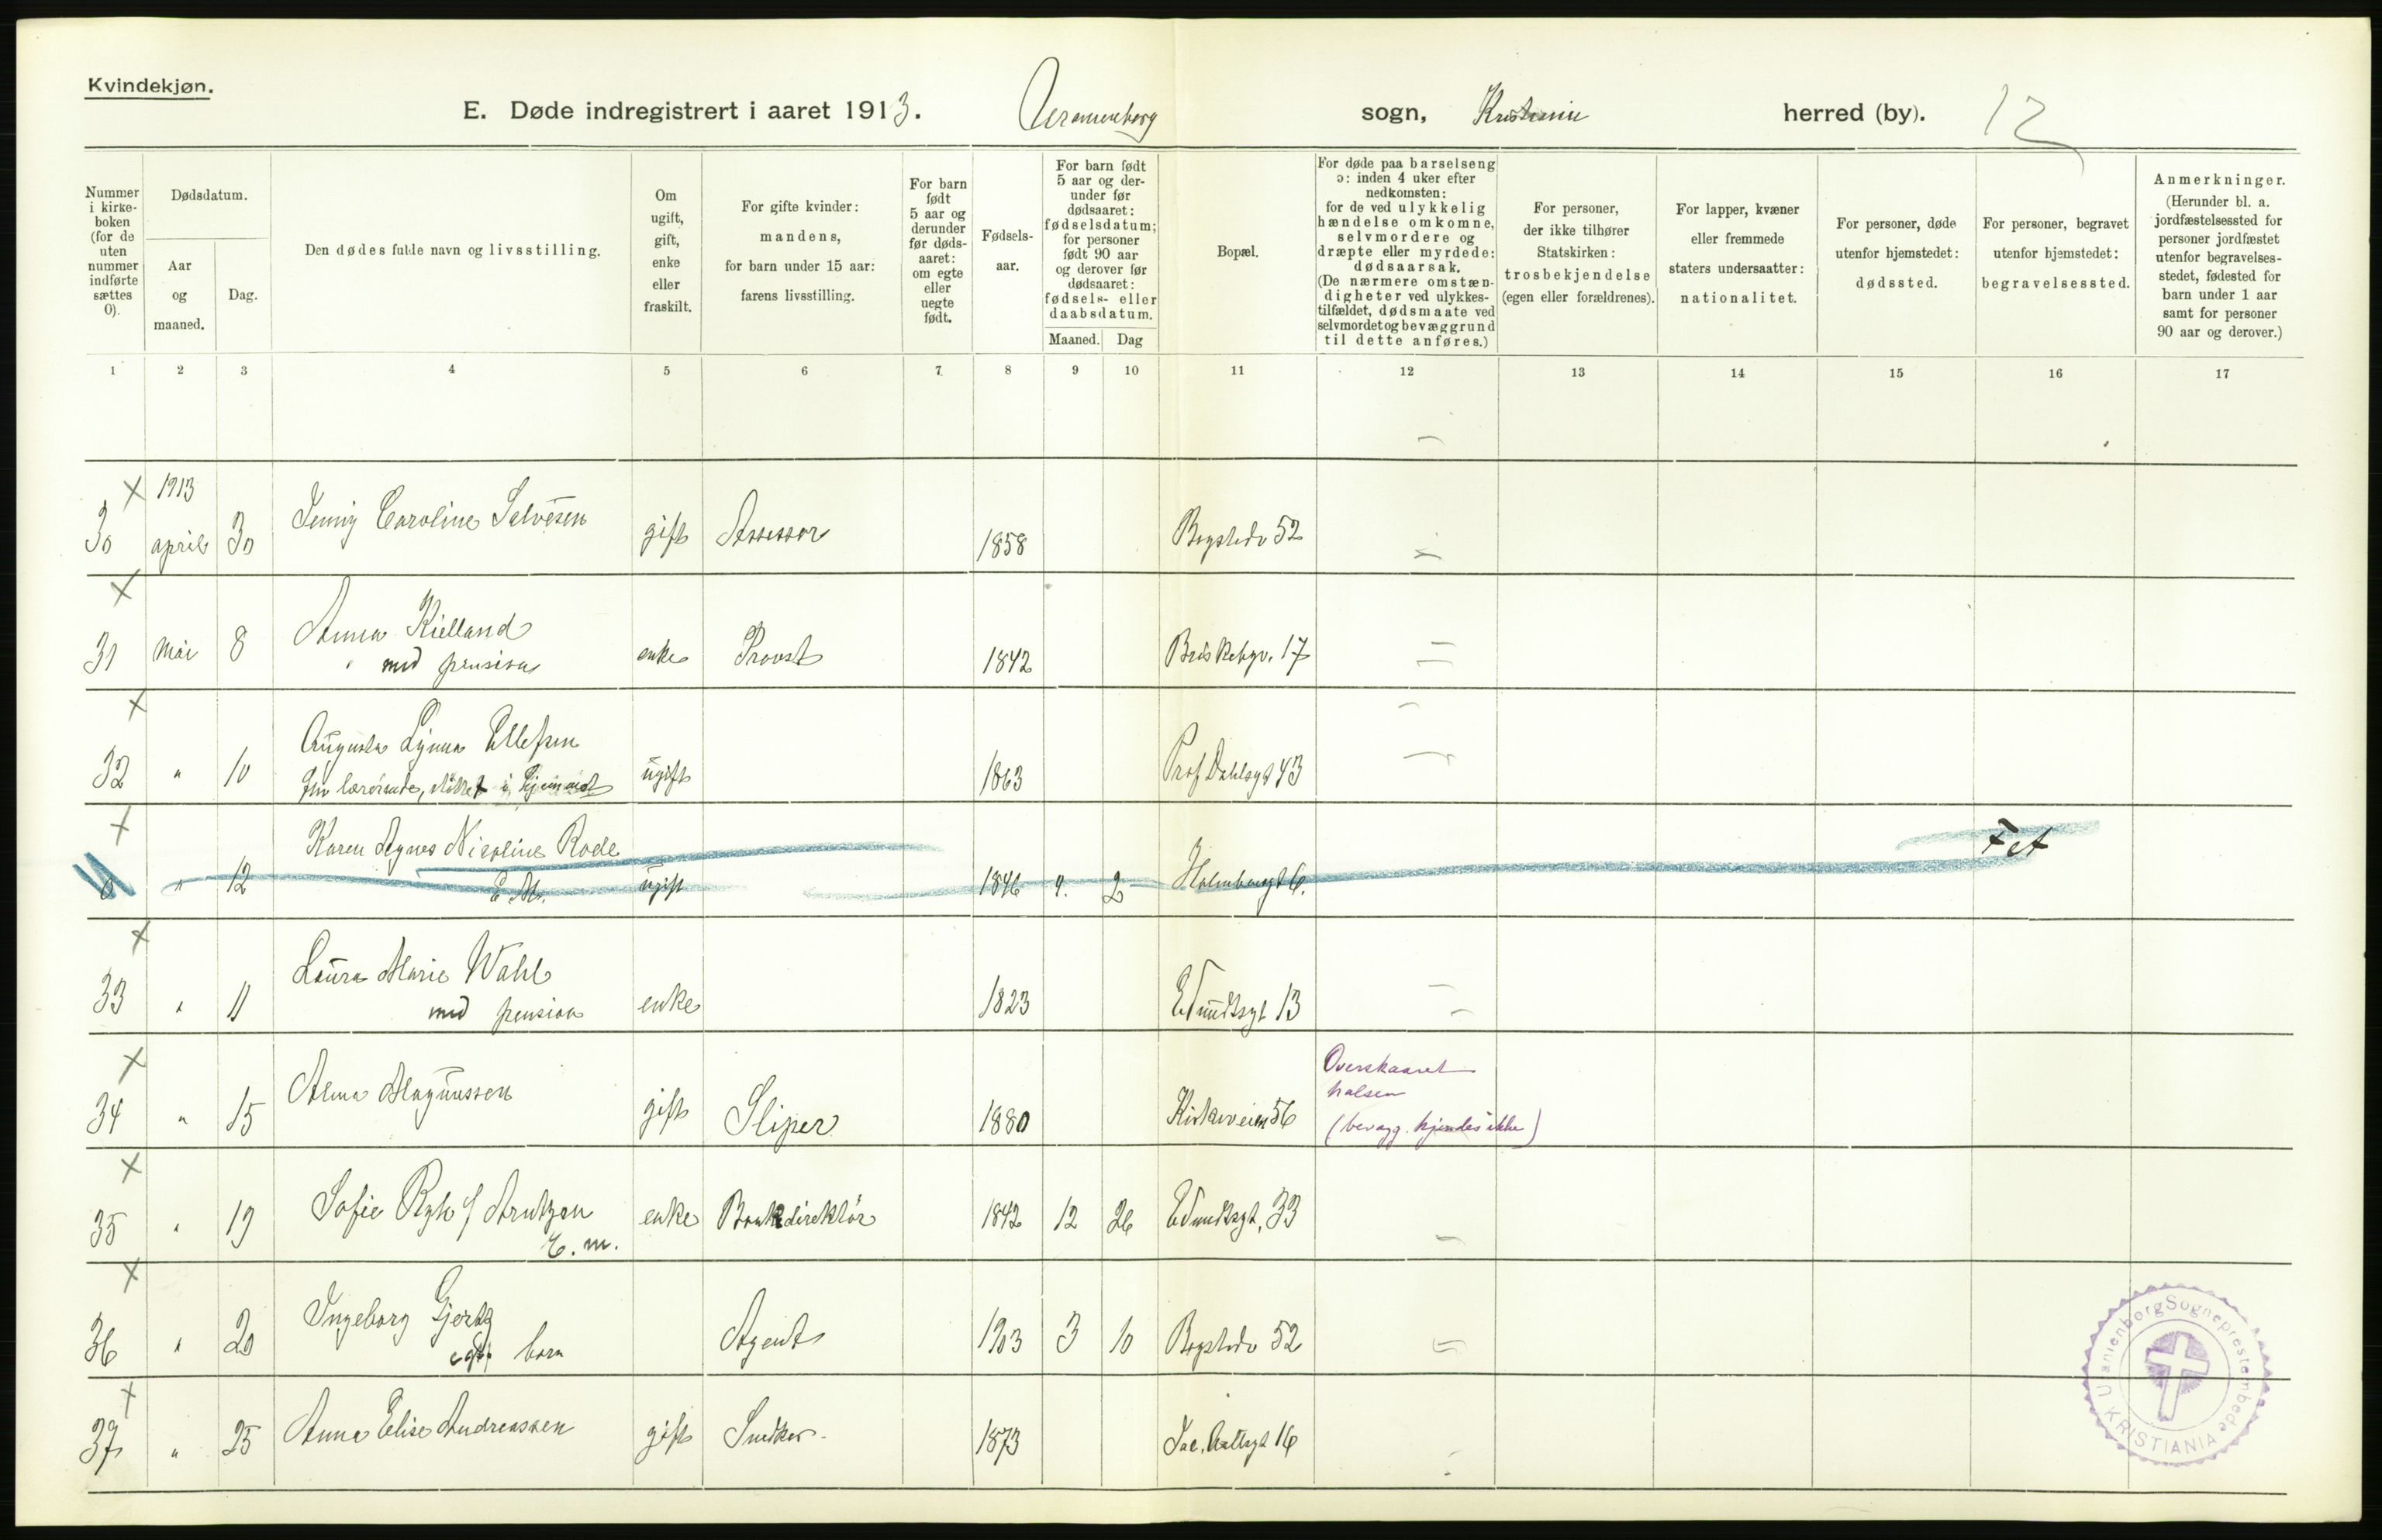 Kvindekjøn.
E. Døde indregistrert i aaret 1913. Uranienborg sogn, Kristiania herred (by). 12
Nummer i kirke-boken (for de uten nummer indførte sættes 0).
Dødsdatum.
Aar og maaned.
Dag.
Den dødes fulde navn og livsstilling.
Om ugift, gift, enke eller fraskilt.
For gifte kvinder: mandens, for barn under 15 aar: farens livsstilling.
For barn født 5 aar og derunder før døds-aaret: om egte eller uegte født.
Fødsels-aar.
For barn født 5 aar og der-under før dødsaaret: fødselsdatum; for personer født 90 aar og derover før dødsaaret: fødsels- eller daabsdatum.
Maaned. Dag
Bopæl.
For døde paa barselseng ɔ: inden 4 uker efter nedkomsten: for de ved ulykkelig hændelse omkomne, selvmordere og dræpte eller myrdede: dødsaarsak. (De nærmere omstæn-digheter ved ulykkes-tilfældet, dødsmaate ved selvmordet og bevæggrund til dette anføres.)
For personer, der ikke tilhører Statskirken: trosbekjendelse (egen eller forældrenes).
For lapper, kvæner eller fremmede staters undersaatter: nationalitet.
For personer, døde utenfor hjemstedet: dødssted.
For personer, begravet utenfor hjemstedet: begravelsessted.
Anmerkninger. (Herunder bl. a. jordfæstelsessted for personer jordfæstet utenfor begravelses-stedet, fødested for barn under 1 aar samt for personer 90 aar og derover.)
1 2 3 4 5 6 7 8 9 10 11 12 13 14 15 16 17
1913
30 april 30 Jenny Caroline Selvesen gift Assessor 1858 Bogstadv 52
31 Mai 8 Anna Kielland enke Provst 1842 Briskebyv. 17
med pension
32 " 10 Augusta Lynna Ellefsen ugift 1863 Prof Dahlsgt 43
fhv lærerinde,
0 " 12 Karen Agnes Nicoline Rode ugift 1846 4. 2 Holmbogt 6. Fet
E. M.
33 " 11 Laura Marie Wahl enke 1823 Edmundsgt 13
med pension
34 " 15 Alma Magnussen gift Sliper 1880 Kirkeveien 56 Overskaaret
halsen
(bevægg. kjendes ikke)
35 " 19 Sofie Ryh f Arntzen enke Bankdirektør 1842 12 26 Edmundsgt, 33
E. m.
36 " 20 Ingeborg Gjertz Agent 1903 3 10 Bogstadv 52
egte barn
37 " 25 Anna Elise Andreassen gift Snedker 1873 Jac. Aallsgt 16
Uranienborg Sogneprestembede KRISTIANIA